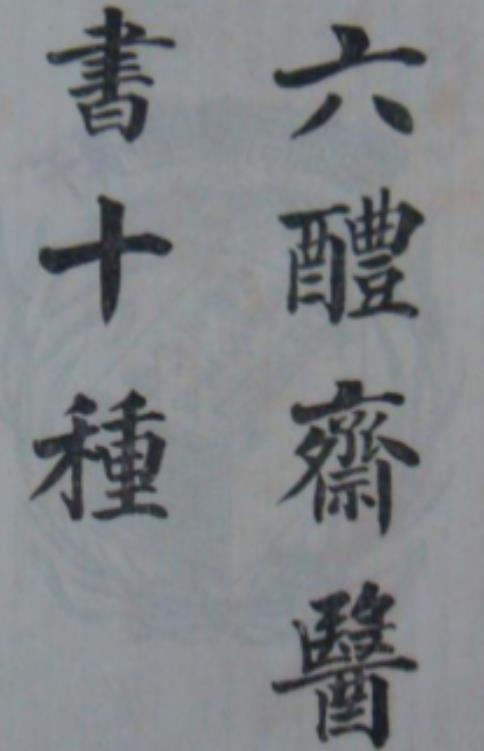 六醴齋醫
書十種